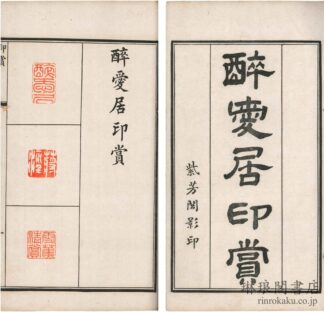 醉愛居印賞
紫芳閣影印
醉愛居印賞
印賞
琳琅閣書店
rinrokaku.co.jp